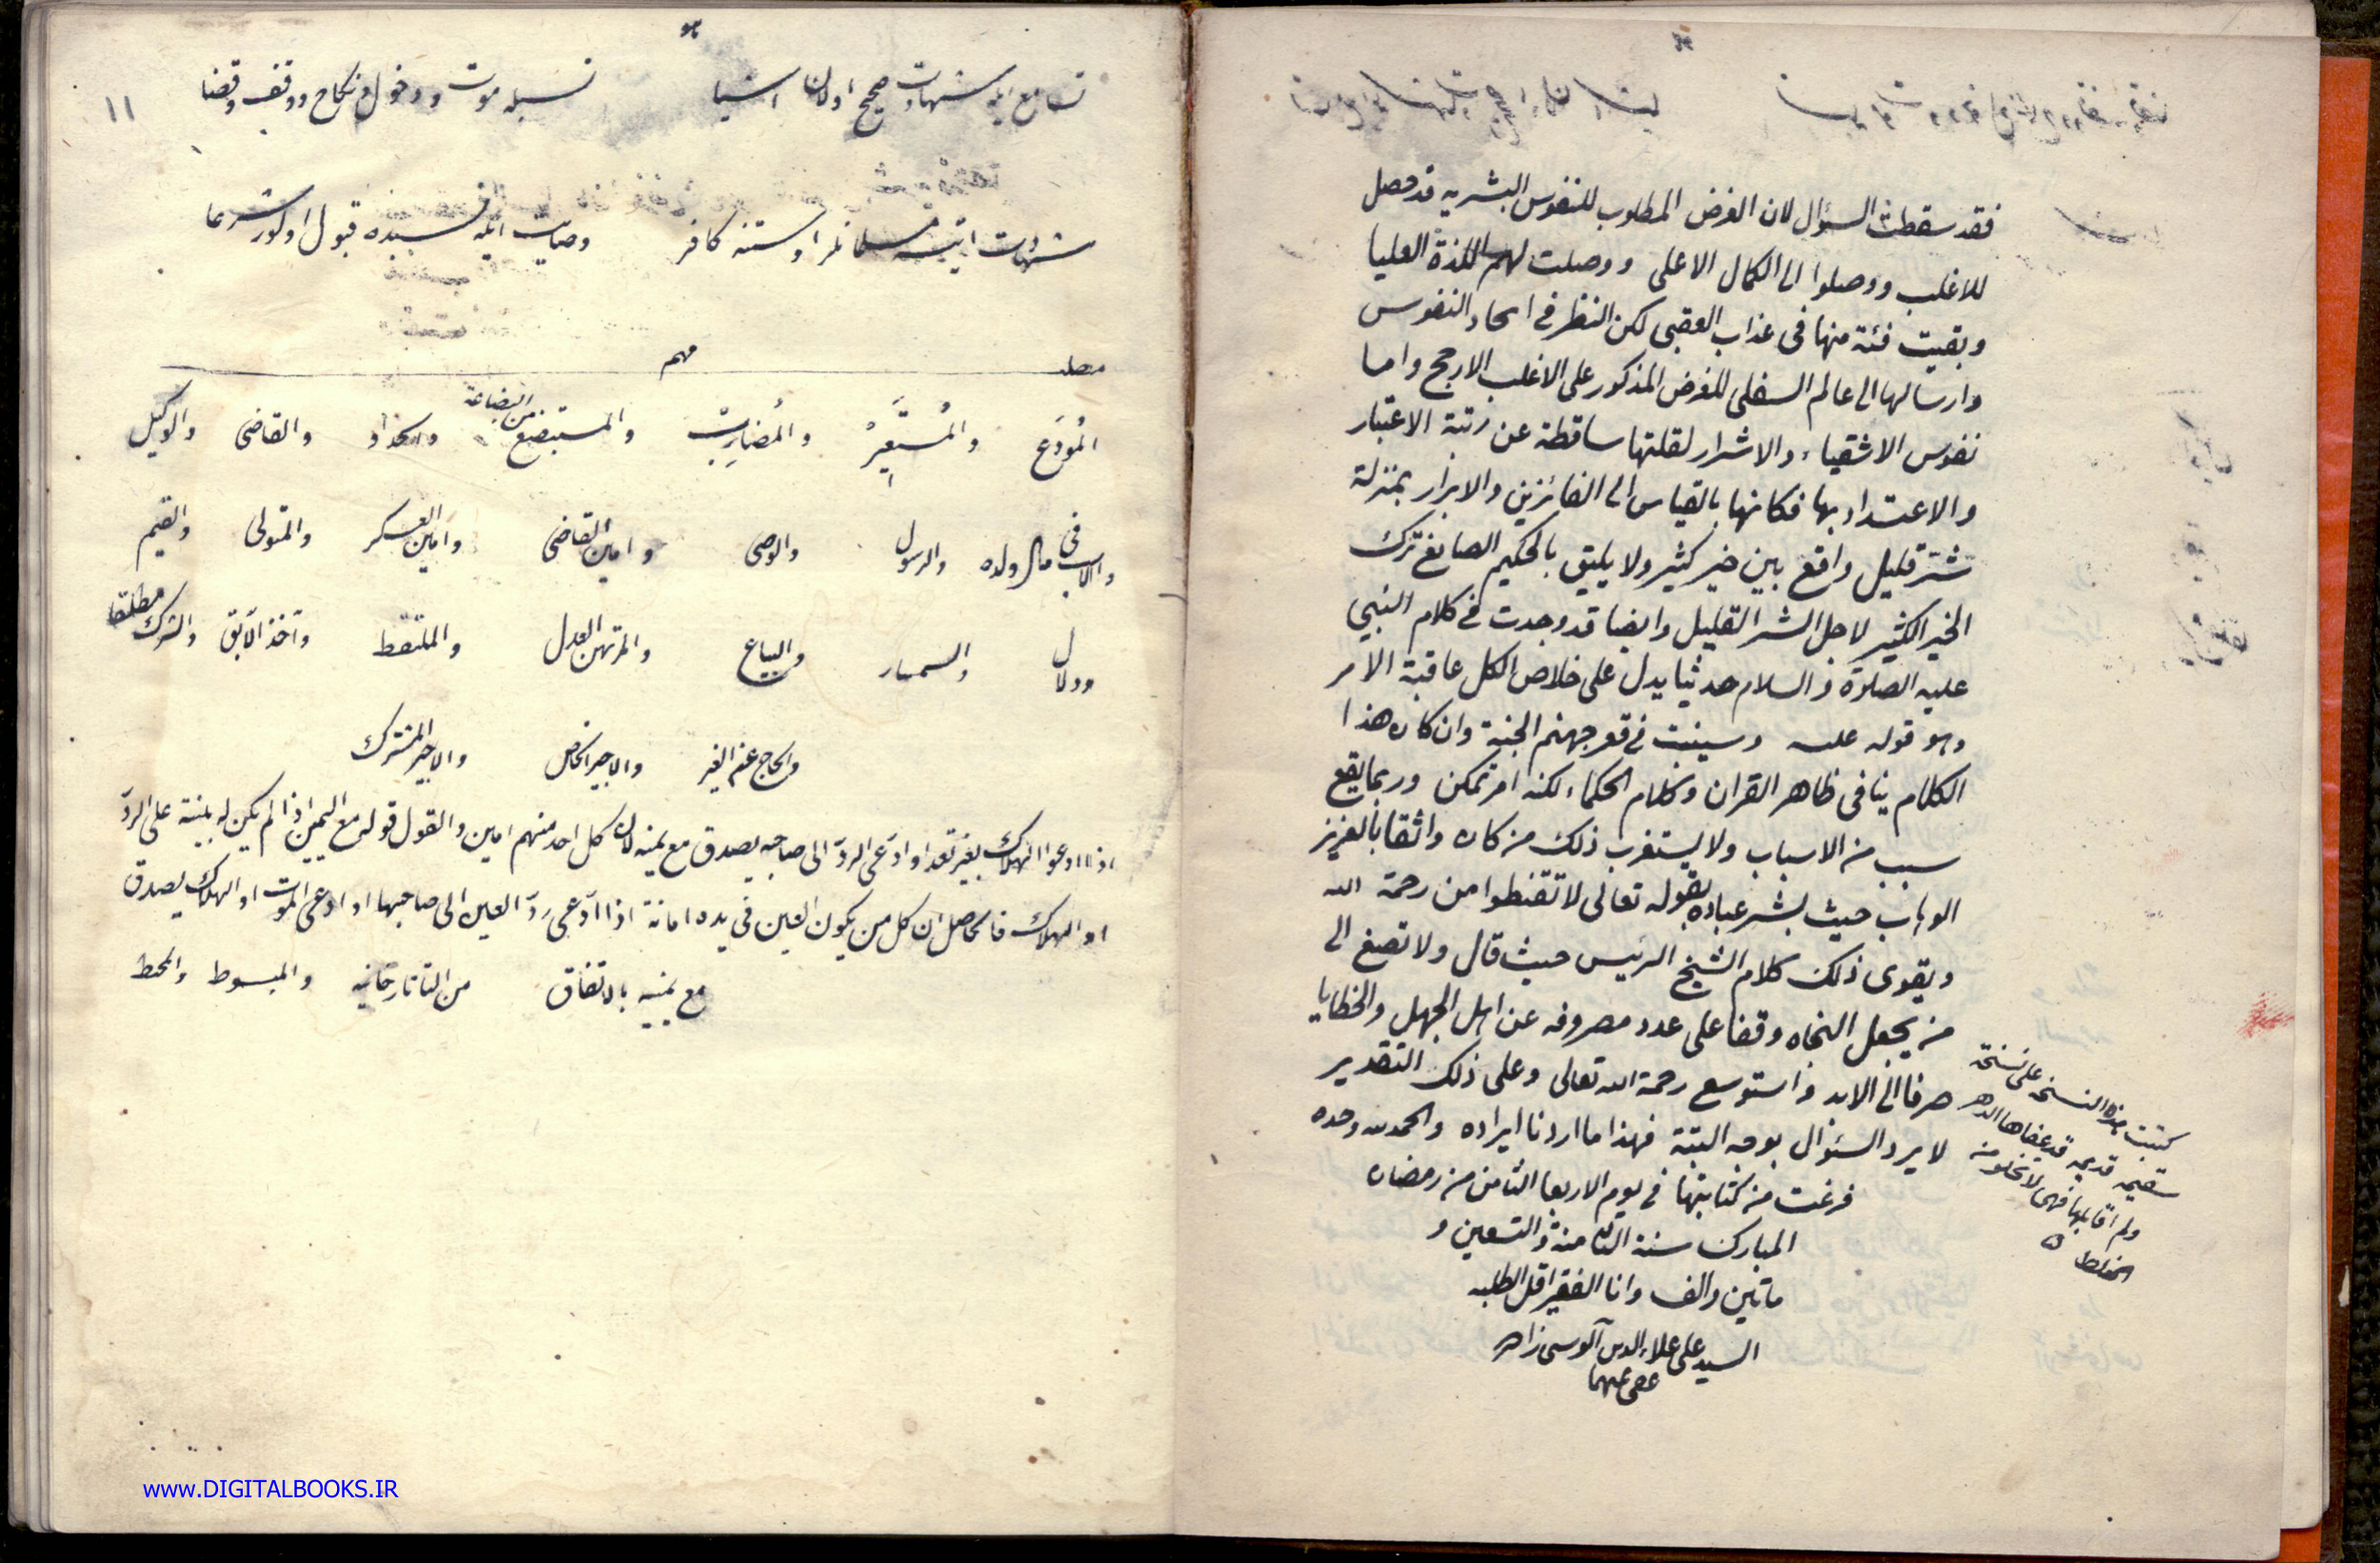 فقد سقطت السؤال لان الغرض المطلوب للنفوس البشريه قد حصل
للاغلب ووصلوا الى الكمال الاعلى ووصلت لهم اللذة العليا
وبقيت فئة منها فى عذاب العقبى لكن النظر فى اىحاد النفوس
وارسالها الى عالم السفلى للغرض المذكور على الاغلب الارجح واما
نفوس الاشقياء والاشرار لقلتها ساقطة عن رتبة الاعتبار
والاعتداد بها فكانها بالقياس الى الفائزين والابرار بمنزلة
شر قليل واقع بين خير كثير ولا يليق بالحكيم الصانع ترك
الخير الكثير لاجل الشر القليل وايضا قد وجدت فى كلام النبي
عليه الصلوة والسلام حديثا يدل على خلاص الكل عاقبة الامر
وهو قوله عليه وسينبت فى قعر جهنم الجنة وان كان هذا
الكلام ينافى ظاهر القران وكلام الحكماء لكنه امر ممكن وربما يقع
سبب من الاسباب ولا يستغرب ذلك من كان واثقا بالعزيز
الوهاب حيث بشر عباده بقوله تعالى لا تقنطوا من رحمة الله
ويقوى ذلك كلام الشيخ الرئيس حيث قال ولا تصغ الى
من يجعل النجاه وقفا على عدد مصروفه عن اهل الجهل والخطايا
صرفا الى الابد واستوسع رحمة الله تعالى وعلى ذلك التقدير
لا يرد السئوال بوجه البتة فهذا ما اردنا ايراده والحمد لله وحده
فرغت من كتابتها فى يوم الاربعا الثامن من رمضان
المبارك سنة الثامنة والتسعين و
مأتين والف وانا الفقير اقل الطلبه
السيد على علاء الدين آلوسى زاده
عفى عنهما
كتبت هذه النسخه على نسخة
سقيمه قديمه قد عفاها الدهر
ولم اقابلها فهى لا تخلو من
الغلط
١١
تسامع ايله شهادت صحيح اولان اشيا نسبله موت ودخول ونكاح ووقف وقضا
شهادت ايتسه مسلمانلر اوستنه كافر وصايت ايله نسبده قبول اولور شرعا
مطلب مهم
المُودَع والمُستَعِيْر والمُضارِبْ والمستبضع من البضاعة والقاضى والوكيل
والاب فى مال ولده والرسول والوصى وامين القاضى وامين العسكر والمتولى والقيم
ودلال والسمسار والبياع والمرتهن العدل والملتقط وآخذ الآبق والشرك مطلقا
والحاج عن الغير والاجير الخاص والاجير المشترك
اذا ادعوا الهلاك بغير تعد او ادّعى الردّ الى صاحبه يصدق مع يمينه لان كل احد منهم امين والقول قوله مع اليمين اذا لم يكن له بينة على الردّ
او الهلاك فالحاصل ان كل من يكون العين فى يده امانة اذا ادّعى ردّ العين الى صاحبها او ادعى الموت او الهلاك يصدق
مع يمينه بالاتفاق من التاتارخانيه والمبسوط والمحيط
www.DIGITALBOOKS.IR